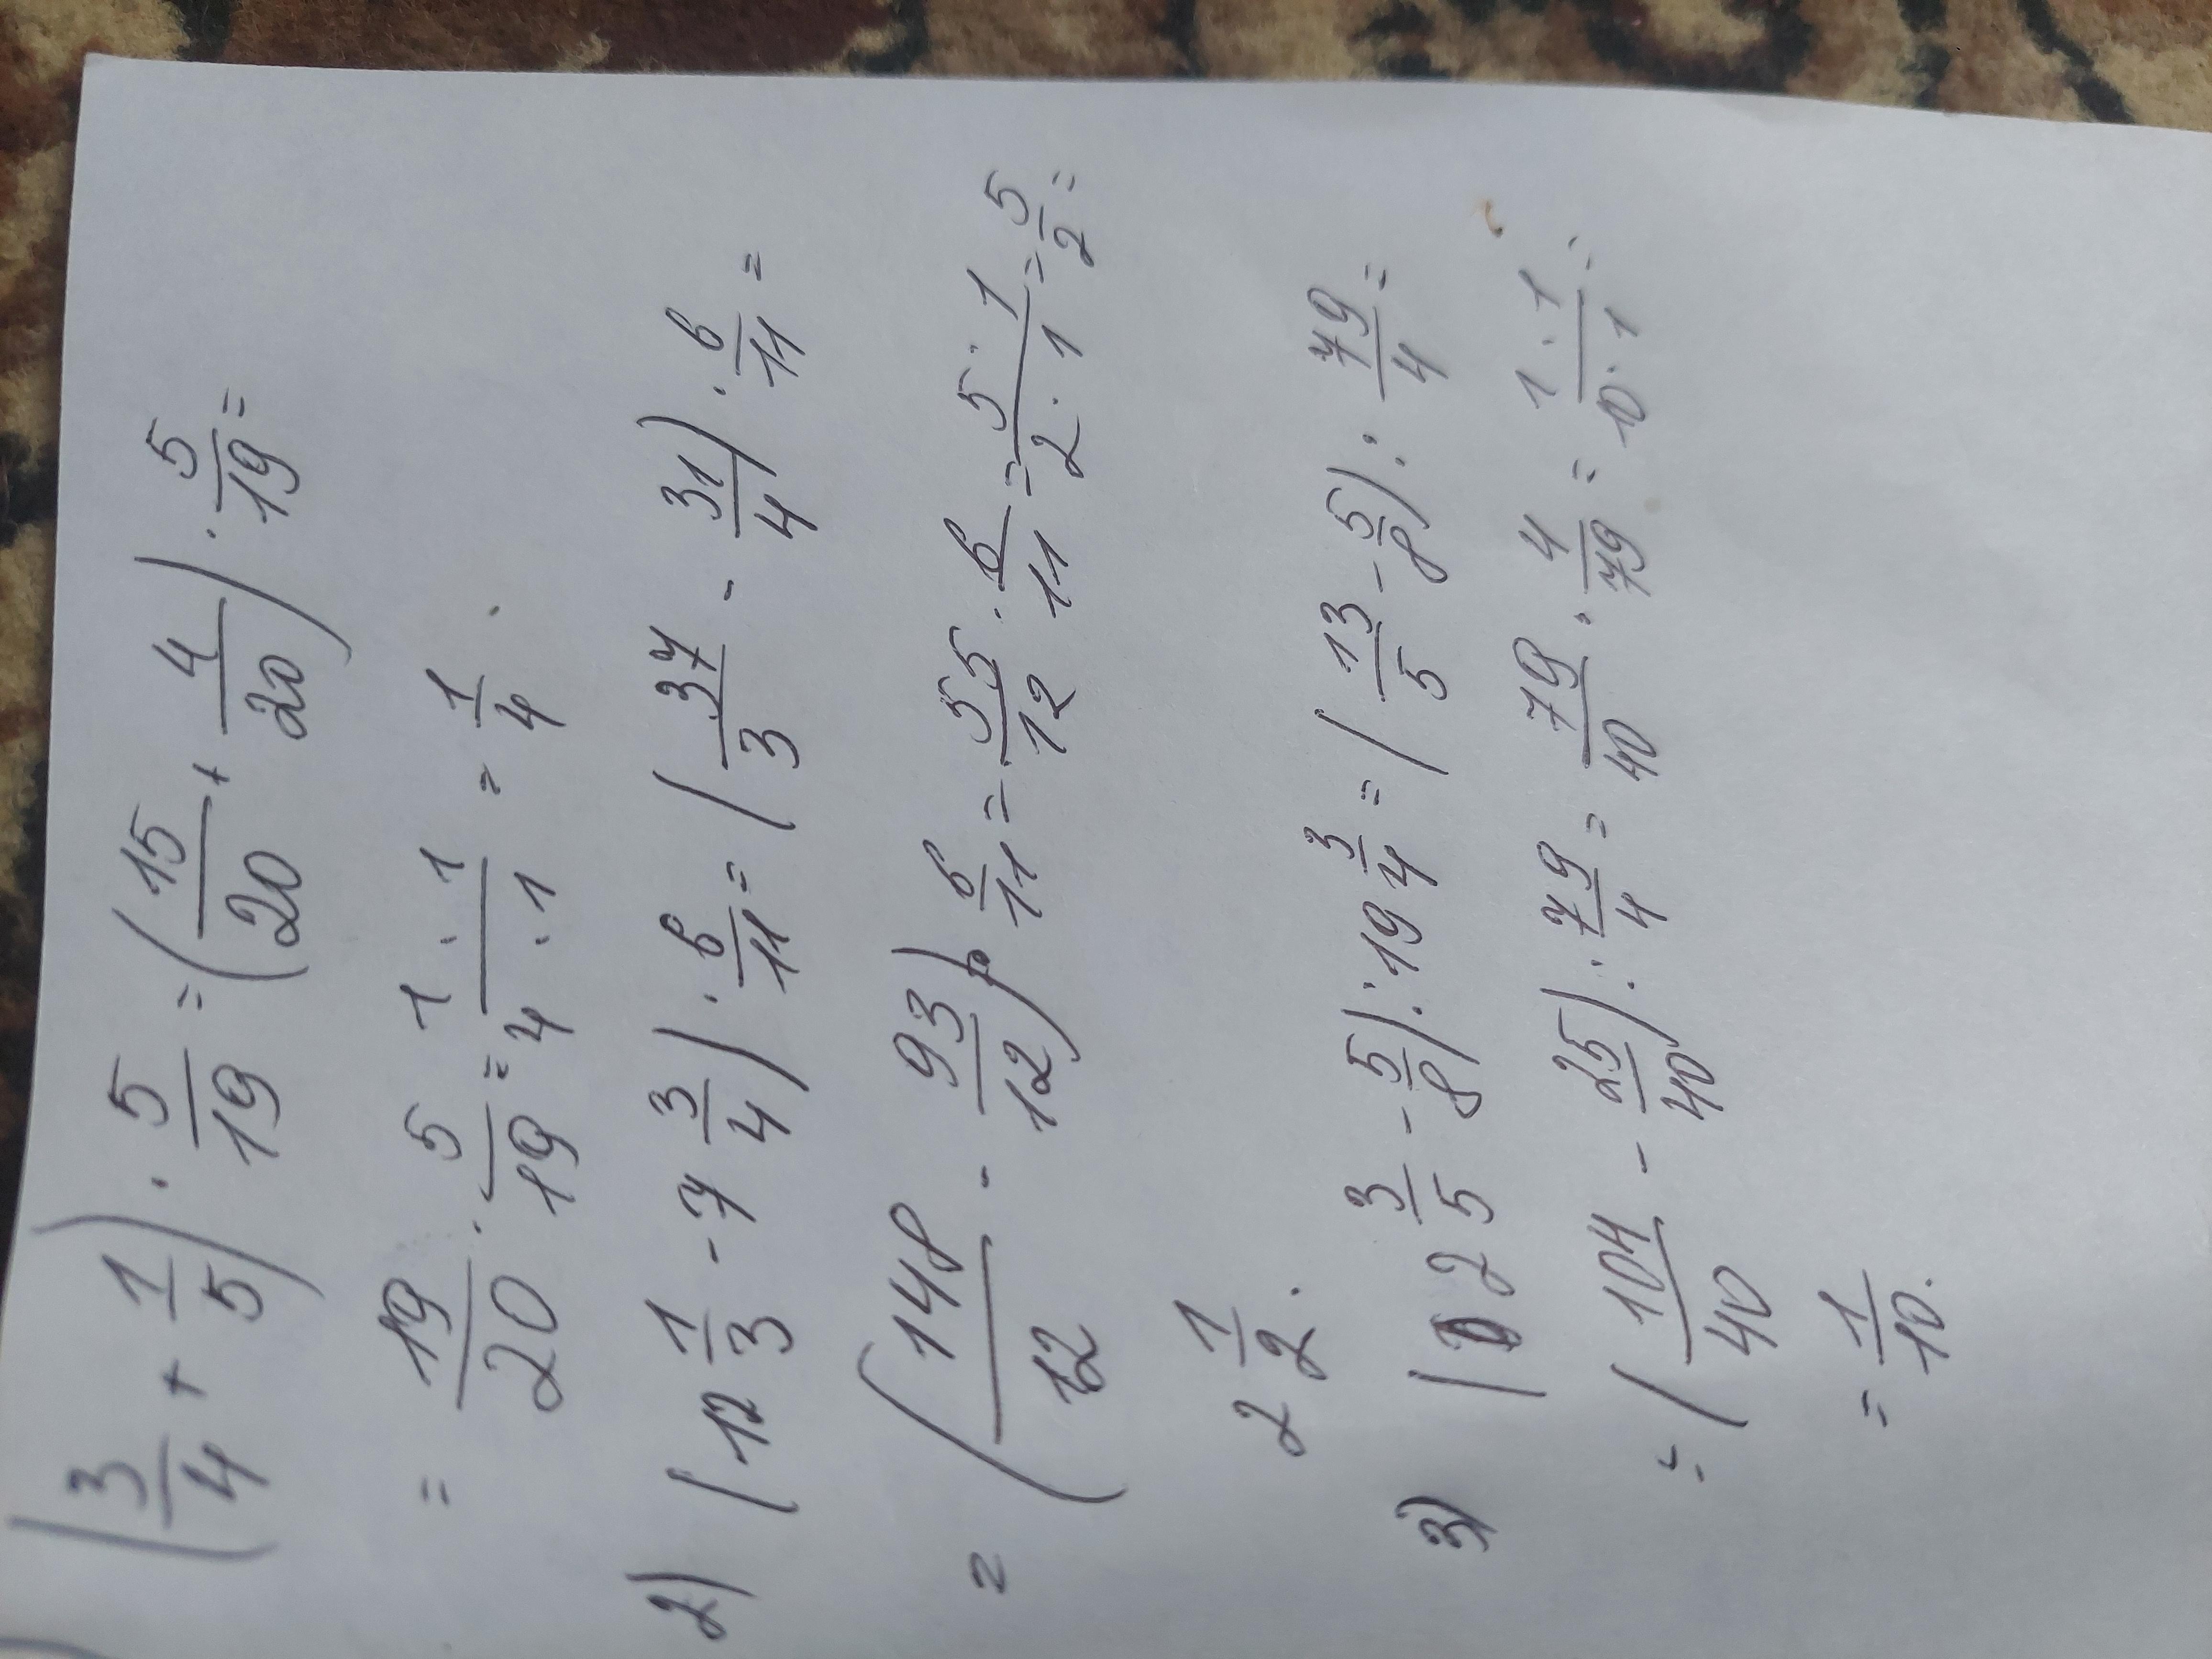 (3/4 + 1/5) · 5/19 = (15/20 + 4/20) · 5/19 =
= 19/20 · 5/19 = 1 · 1/4 · 1 = 1/4.
2) (12 1/3 - 7 3/4) · 6/11 = (37/3 - 31/4) · 6/11 =
= (148/12 - 93/12) · 6/11 = 55/12 · 6/11 = 5 · 1/2 · 1 = 5/2 =
2 1/2.
3) (2 3/5 - 5/8) : 19 3/4 = (13/5 - 5/8) : 79/4 =
= (104/40 - 25/40) : 79/4 = 79/40 · 4/79 = 1 · 1/10 · 1 =
= 1/10.